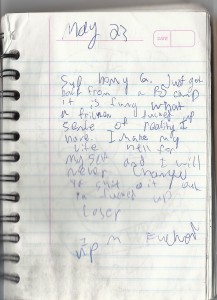 May 23
Sup homy G. Just got
back from a FS camp
it is funny what
a fucked up
sense of reality I
have. I make my
life hell for
my self and I will
never change
fucked up
loser
I'm Fucked
up